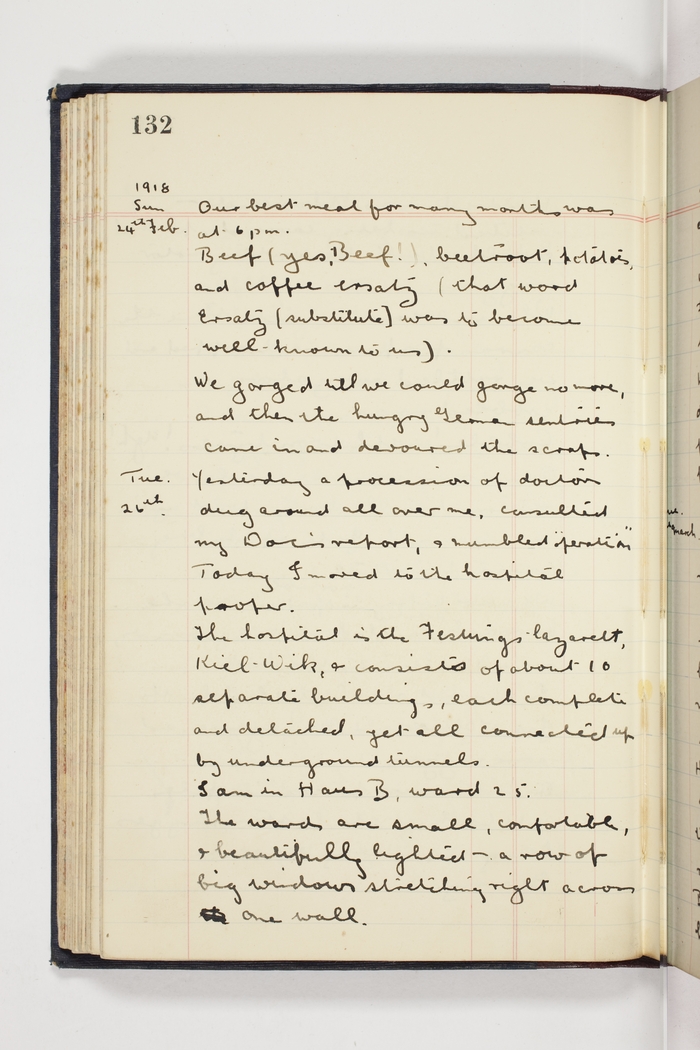 132
1918
Sun Our best meal for many months was
24th Feb. at 6 pm.
Beef (yes, Beef!), beetroot, potatoes,
and coffee ersatz (that word
Ersatz [substitute] was to become
well-known to us).
We gorged till we could gorge no more,
and then the hungry German sentries
came in and devoured the scraps.
Tue. Yesterday a procession of doctors
26th. dug around all over me, consulted
my Doc's report, & mumbled "operation"
Today I moved to the hospital
proper.
The hospital is the Festungs-lazarett,
Kiel-Wik, & consists of about 10
separate buildings, each complete
and detached, yet all connected up
by underground tunnels.
I am in Haus B, ward 25.
The wards are small, comfortable,
& beautifully lighted – a row of
big windows stretching right across
one wall.